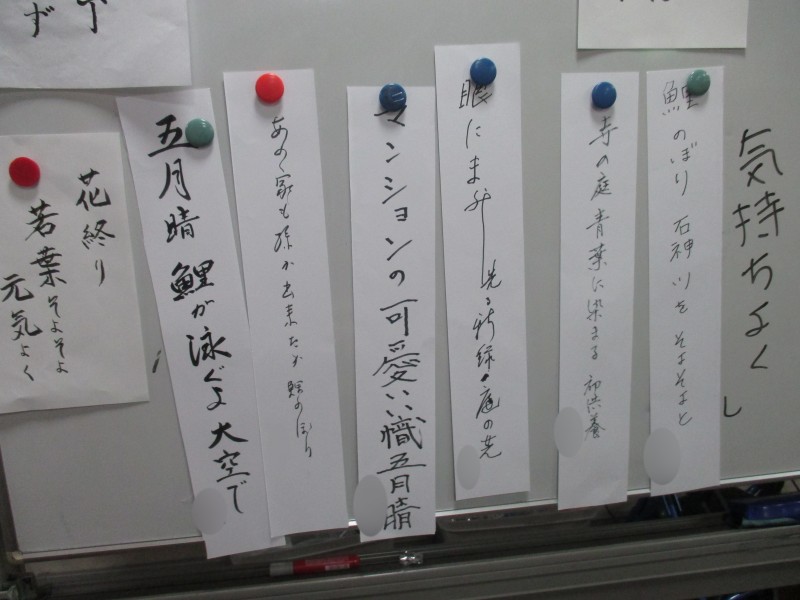 気持ちよく
し
鯉のぼり 石神川を そよそよと
寺の庭 青葉に染まる
眼にまぶし 光る新緑 庭の芝
マンションの可愛い幟五月晴
あの家も孫が出来たか 鯉のぼり
五月晴 鯉が泳ぐよ 大空で
花終り
若葉そよそよ
元気よく
ず